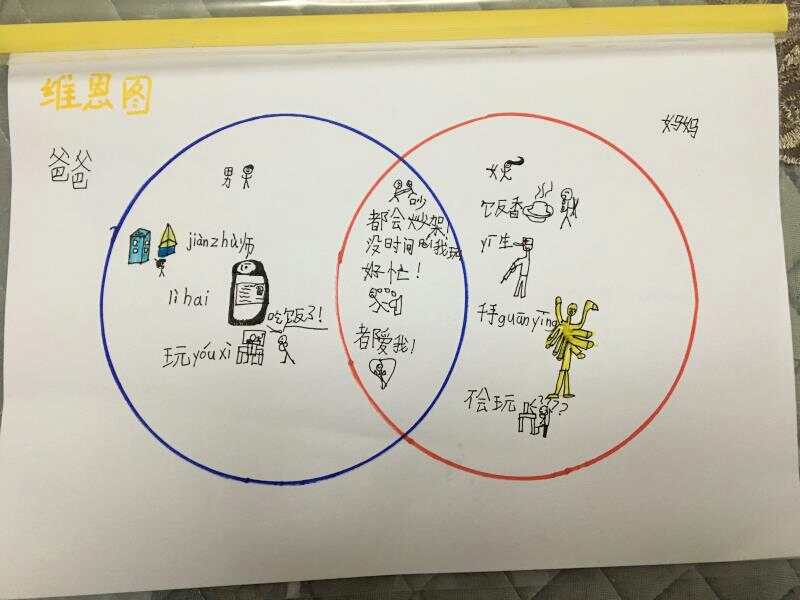 维恩图
爸爸
妈妈
男
jiànzhù师
lìhai
吃饭了!
玩yóuxì
吵
都会炒架!
没时间陪我玩
好忙!
都爱我!
女
饭香
yī生
千手guānyīng
不会玩
????